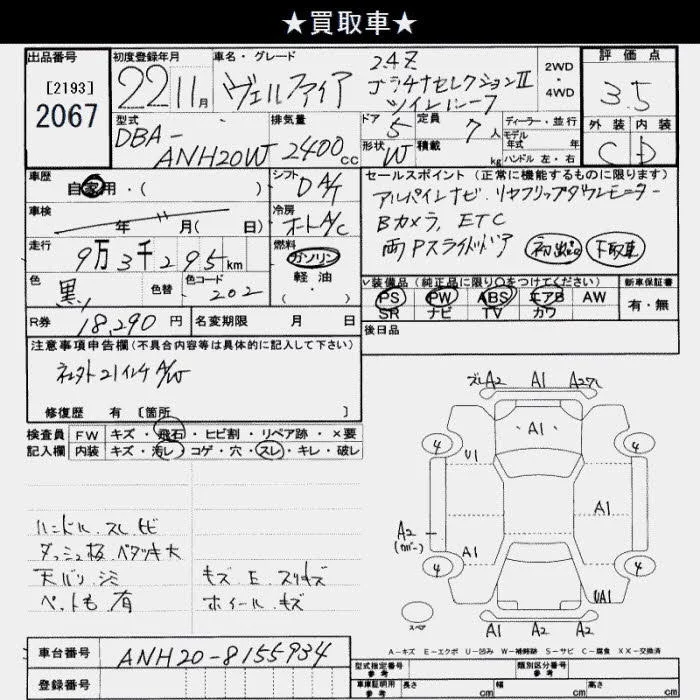 ★買取車★
出品番号
[2193]
2067
初度登録年月
22 11月
車名・グレード
ヴェルファイア
2.4Z
プラチナセレクションⅡ
ツインルーフ
2WD
・
4WD
評価点
3.5
外装 内装
C D
型式
DBA-
ANH20W
排気量
2400cc
ドア 5
定員 7人
形状 W
積載 kg
ディーラー・並行
モデル
年式 年
ハンドル 左・右
車歴
自家用・( )
シフト DA/T
車検
年 月( 日)
冷房 オートA/C
走行
9万3千295km
燃料
ガソリン
軽・油
・
色
黒
色替
色コード
202
R券 18,290円
名変期限 月 日
セールスポイント (正常に機能するものに限ります)
アルパインナビ・リヤフリップダウンモニター
Bカメラ、ETC
両Pスライドドア 初出品 下取車
装備品 (純正品に限り○をつけてください)
PS PW ABS エアB AW
SR ナビ TV カワ
新車保証書
有・無
後日品
注意事項申告欄(不具合内容等は具体的に記入して下さい)
社外21インチA/W
修復歴 有 [箇所 ]
検査員
記入欄
FW キズ・飛石・ヒビ割・リペア跡・×要
内装 キズ・汚レ・コゲ・穴・スレ・キレ・破レ
ハンドル、スレ、ヒビ
ダッシュ板、ベタツキ大
天バリ、シミ
ペット毛、有
キズ、E、スリキズ
ホイール、キズ
ズレA2 A1 A2ズレ
A1
4 4
U1
A1
A2
(カバー)
A1
4 4
UA1
スペア
A1 A2 A2
A-キズ E-エクボ U-凹み W-補修跡 S-サビ C-腐食 XX-交換済
車台番号 ANH20-8155934
登録番号
型式指定番号
参考
類別区分番号
参考
車庫証明用
参考
長さ cm 幅 cm 高さ cm